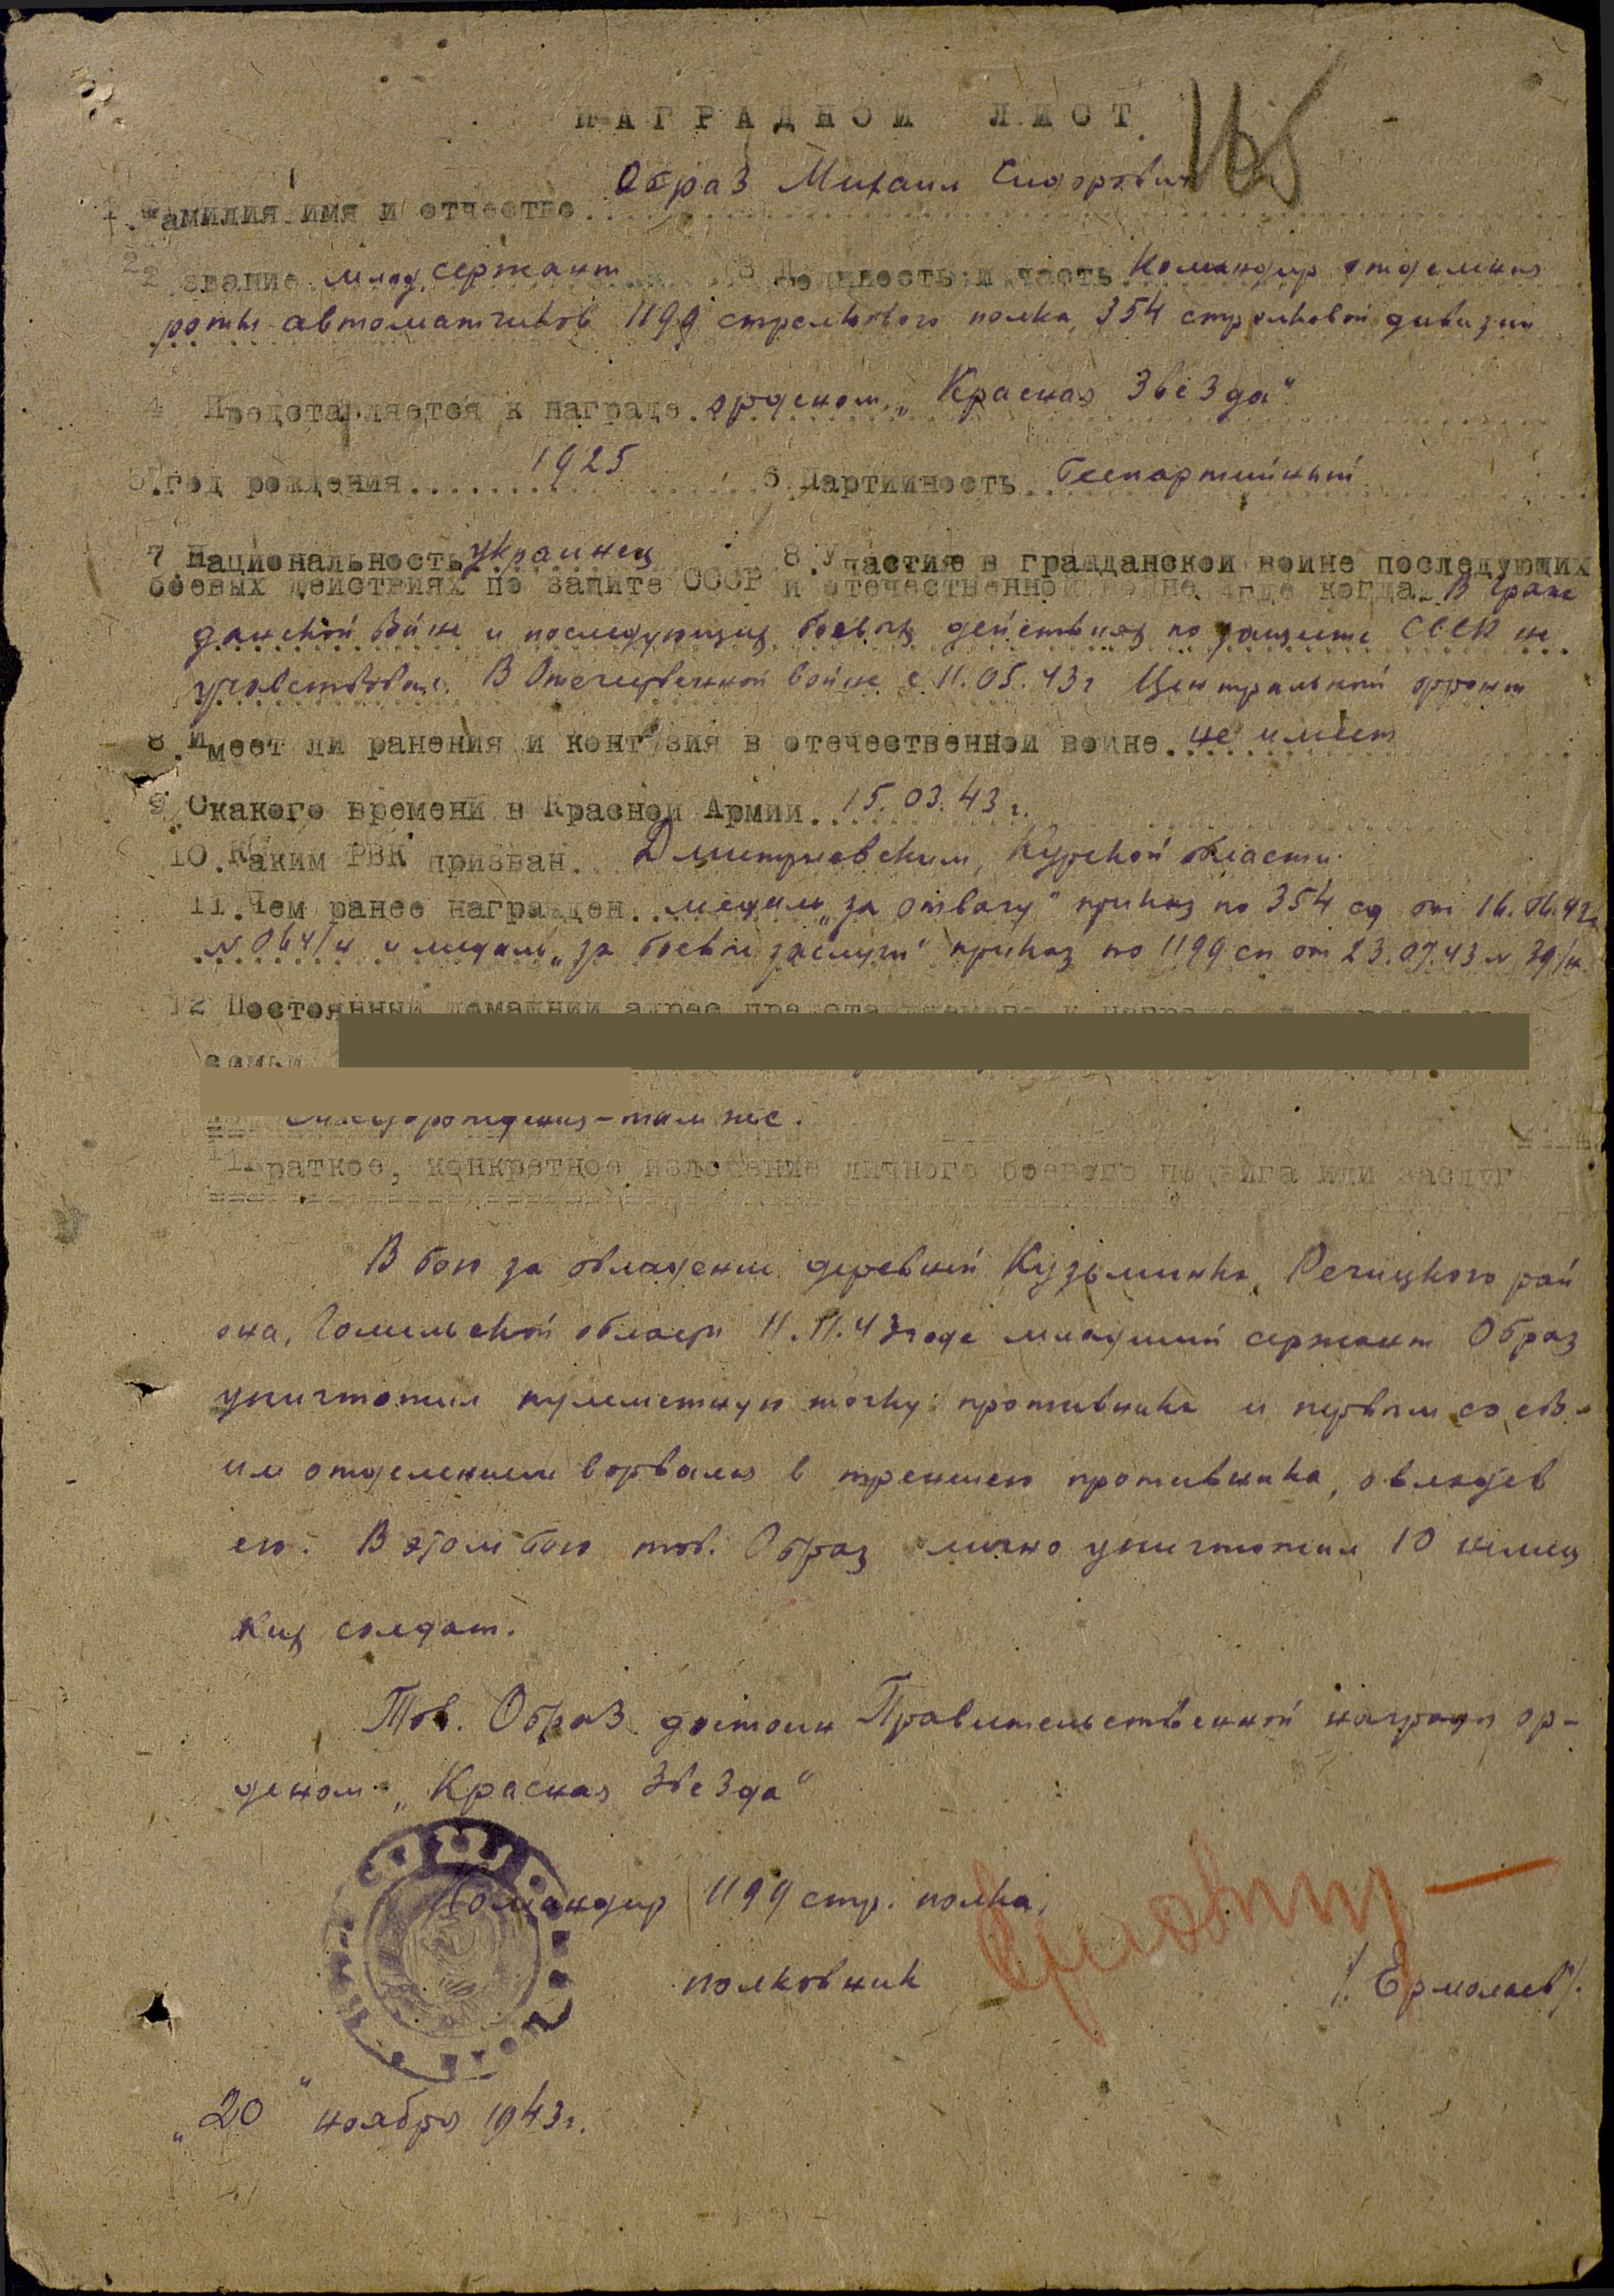 НАГРАДНОЙ ЛИСТ
165
Образ Михаил Сидорович
1. Фамилия имя и отчество
2 звание млад. сержант 3 Должность и часть Командир отделения
роты автоматчиков 1199 стрелкового полка, 354 стрелковой дивизии
4 Представляется к награде орденом „Красная Звезда"
5. год рождения 1925 6 Партийность беспартийный
7 Национальность украинец 8. Участие в гражданской войне последующих
боевых действиях по защите СССР и отечественной войне где когда В Граж
данской войне и последующих боевых действиях по защите СССР не
участвовал. В Отечественной войне с 11.05.43г Центральный фронт
8. Имеет ли ранения и контузия в отечественной войне. не имеет
9. Скакого времени в Красной Армии. 15.03.43 г.
10. Каким РВК призван. Дмитриевским, Курской области
11. Чем ранее награжден. медаль „за отвагу" приказ по 354 сд от 16.06.43г
№ 064/н и медаль „за боевые заслуги" приказ по 1199 сп от 23.07.43 № 39/н.
12 Постоянный домашний адрес
семьи
там же.
Краткое, конкретное изложение личного боевого подвига или заслуг
В бою за овладение деревней Кузьминка, Речицкого рай
она, Гомельской области 11.11.43 года младший сержант Образ
уничтожил пулеметную точку противника и первым со сво-
им отделением ворвался в траншею противника, овладев
ею. В этом бою тов. Образ лично уничтожил 10 немец
ких солдат.
Тов. Образ достоин Правительственной награды ор-
деном „Красная Звезда"
Командир 1199 стр. полка,
полковник /Ермолаев/.
„20" ноября 1943г.